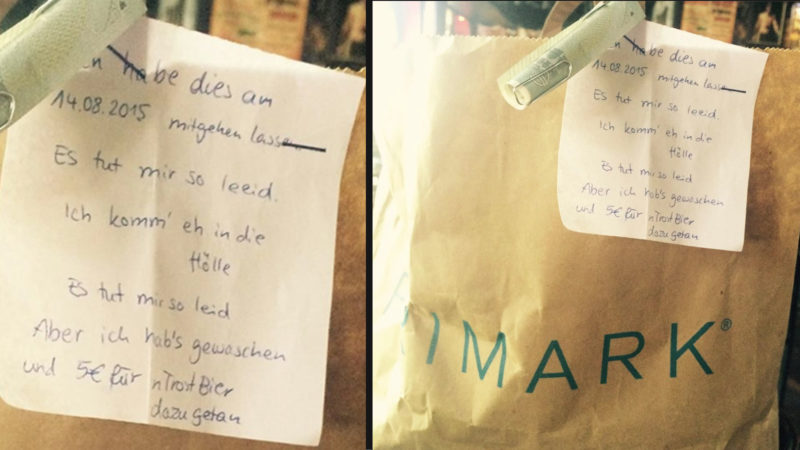 habe dies am
14.08.2015 mitgehen lassen
Es tut mir so leeid.
Ich komm' eh in die
Hölle
Es tut mir so leid
Aber ich hab's gewaschen
und 5€ für nTrostBier
dazu getan
habe dies am
14.08.2015 mitgehen lassen
Es tut mir so leeid.
Ich komm' eh in die
Hölle
Es tut mir so leid
Aber ich hab's gewaschen
und 5€ für nTrostBier
dazu getan
IMARK®